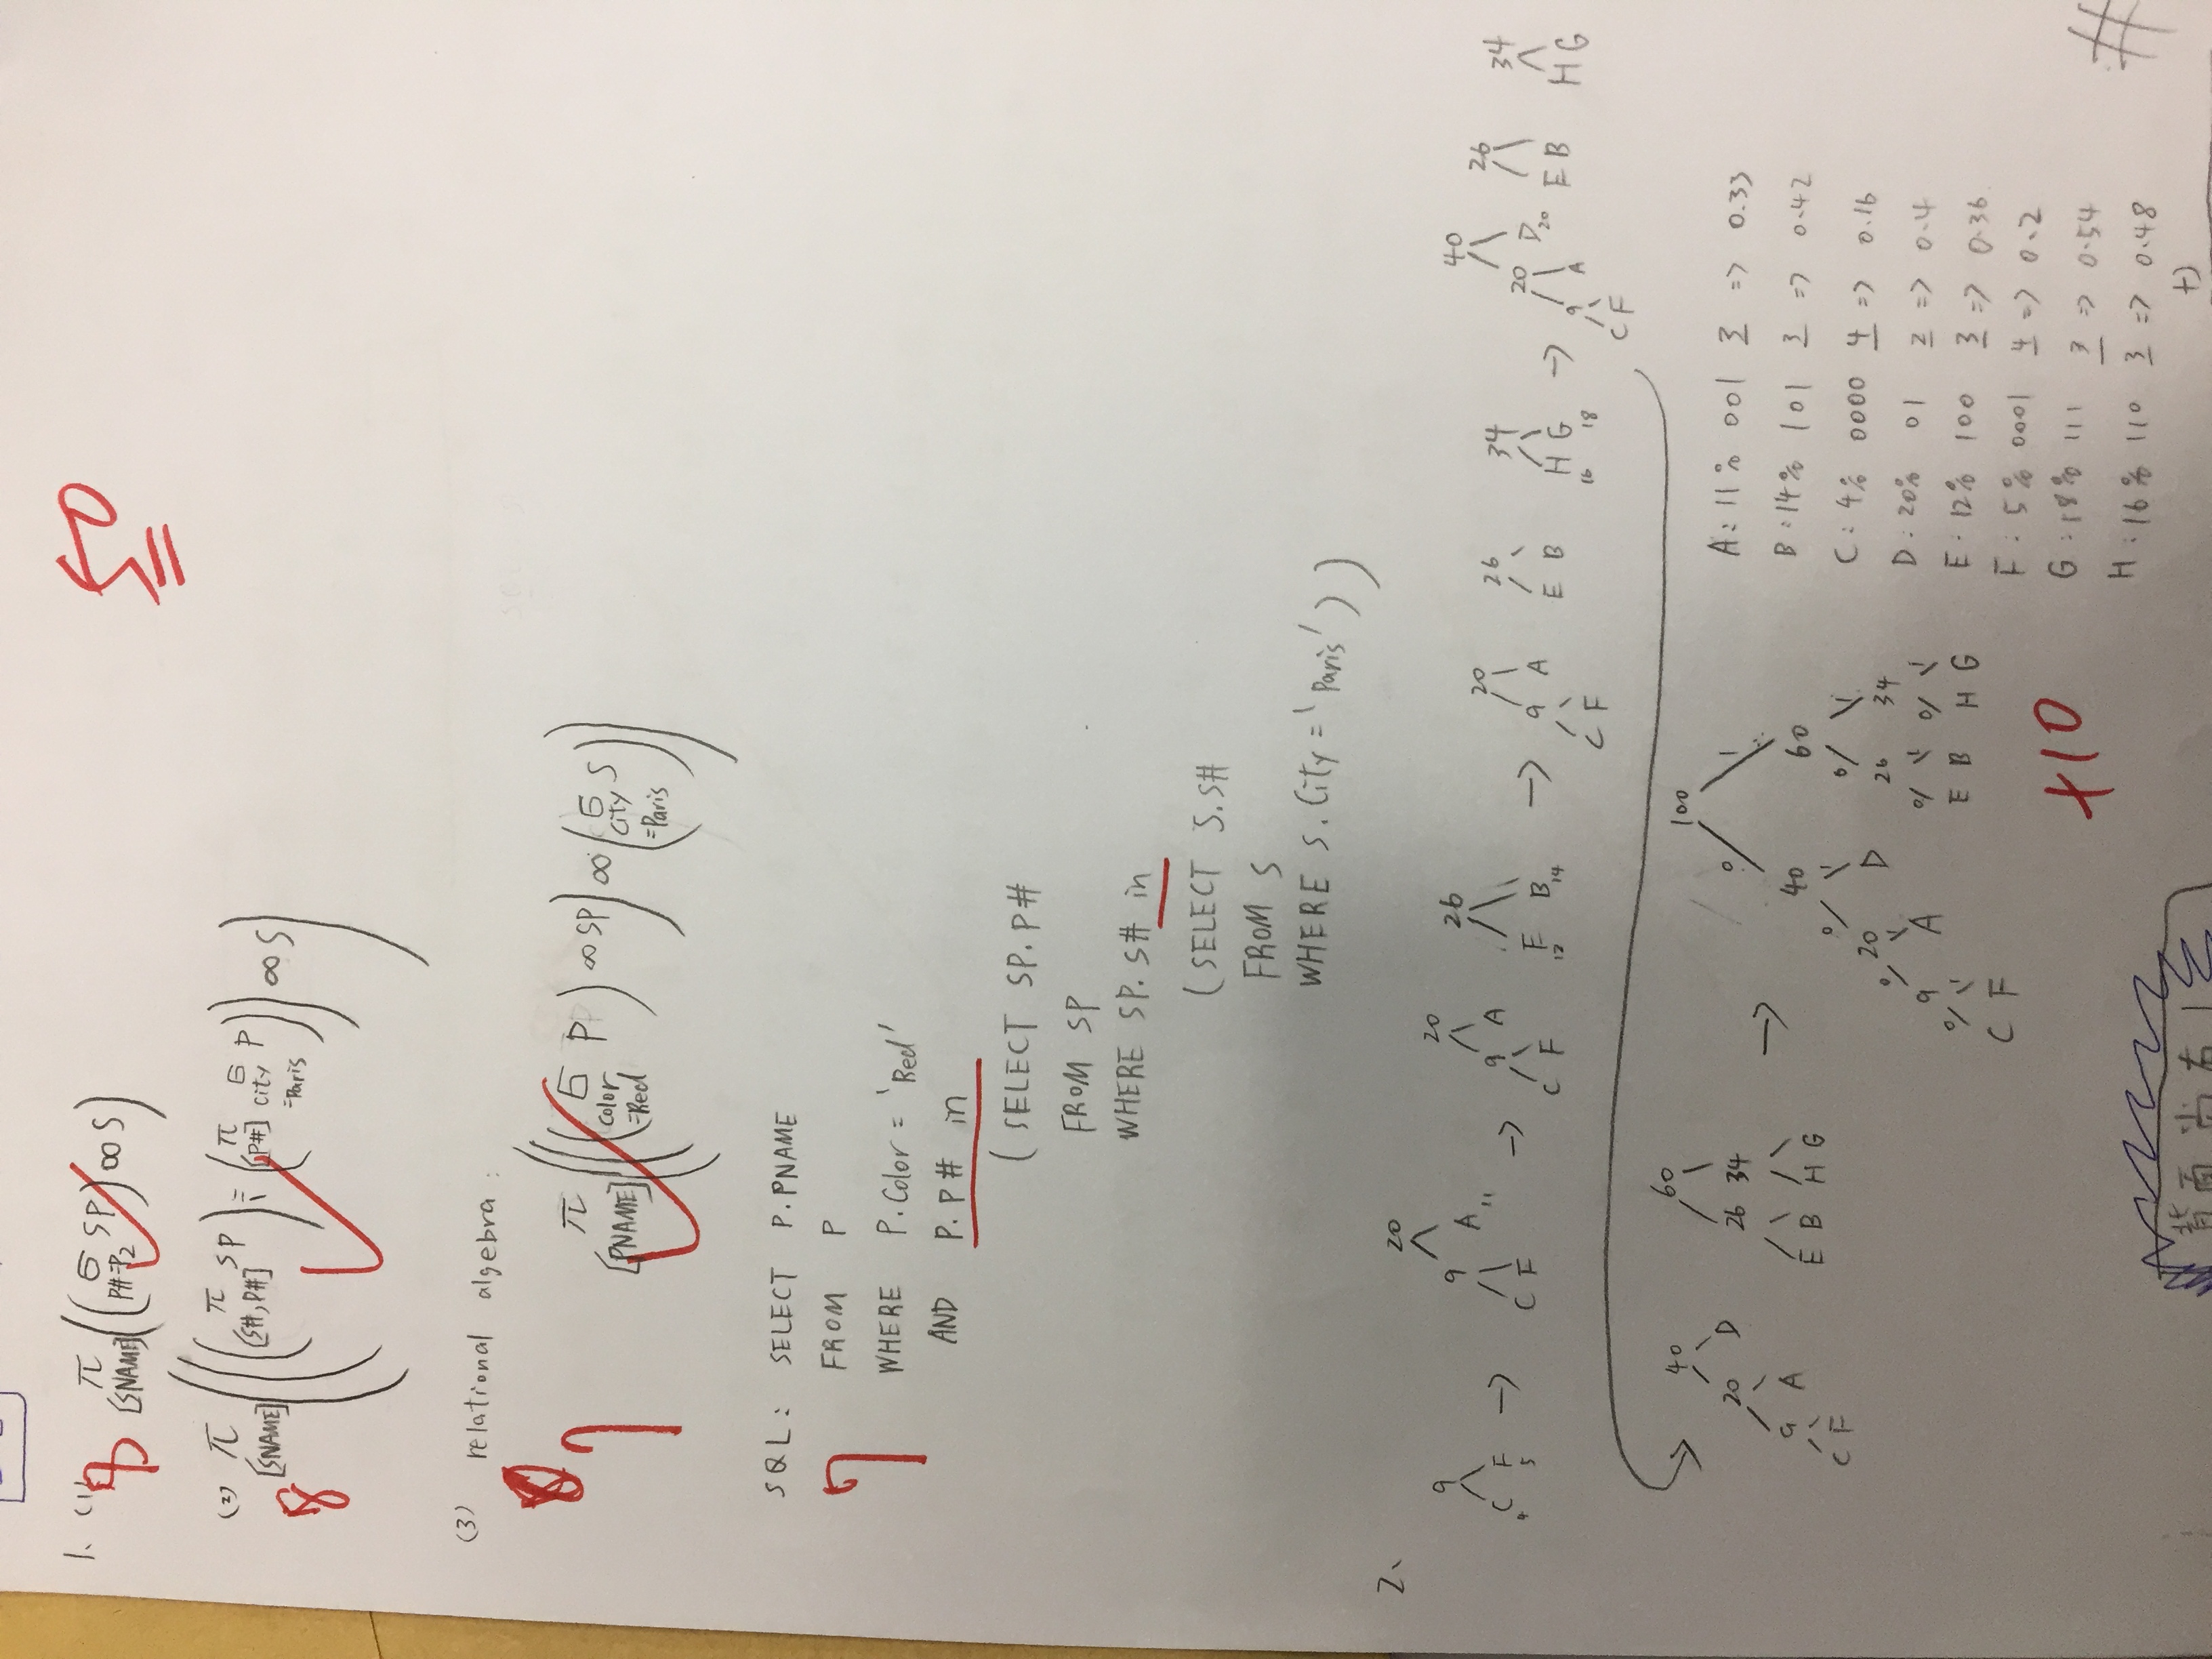 50
1、 (1) 8 π [SNAME] ((σ P#=P2 SP) ∞ S)
(2) 8 π [SNAME] (((π [S#,P#] SP) ÷ (π [P#] σ city =Paris P)) ∞ S)
(3) relational algebra :
7 π [PNAME] (((σ color =Red P) ∞ SP) ∞ (σ city =Paris S))
SQL : SELECT P.PNAME
7 FROM P
WHERE P.Color = 'Red'
AND P.P# in
( SELECT SP.P#
FROM SP
WHERE SP.S# in
( SELECT S.S#
FROM S
WHERE S.City = 'Paris' ) )
2、
9 C 4 F 5 → 20 9 A 11 C F → 20 9 A C F 26 E 12 B 14 → 20 9 A C F 26 E B 34 H 16 G 18 → 40 20 D 20 9 A C F 26 E B 34 H G
→ 40 20 D 9 A C F 60 26 34 E B H G → 100 0 1 40 60 0 1 0 1 20 D 26 34 0 1 0 1 0 1 9 A E B H G 0 1 C F
A : 11% 001 3 => 0.33
B : 14% 101 3 => 0.42
C : 4% 0000 4 => 0.16
D : 20% 01 2 => 0.4
E : 12% 100 3 => 0.36
F : 5% 0001 4 => 0.2
G : 18% 111 3 => 0.54
H : 16% 110 3 => 0.48
+)
#
+10
背面尚有!